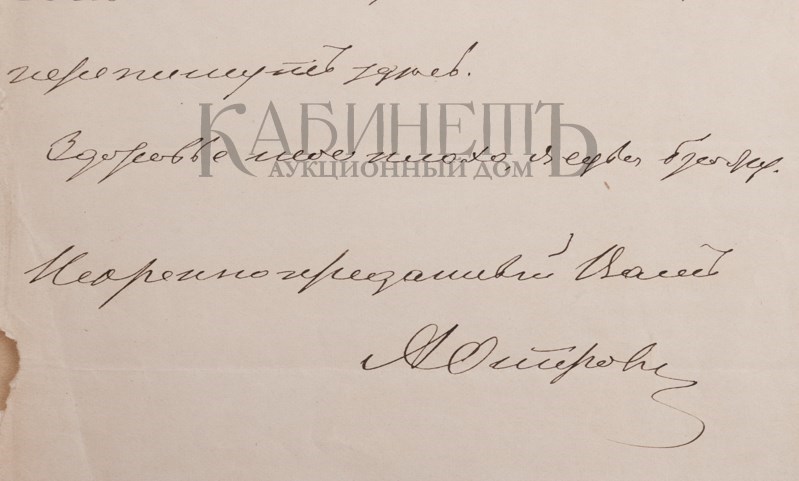 перепишутъ здѣсь.
КАБИНЕТЪ
АУКЦИОННЫЙ ДОМ
Здоровье мое плохо, я едва брожу.
Искренно преданный Вамъ
А Островс